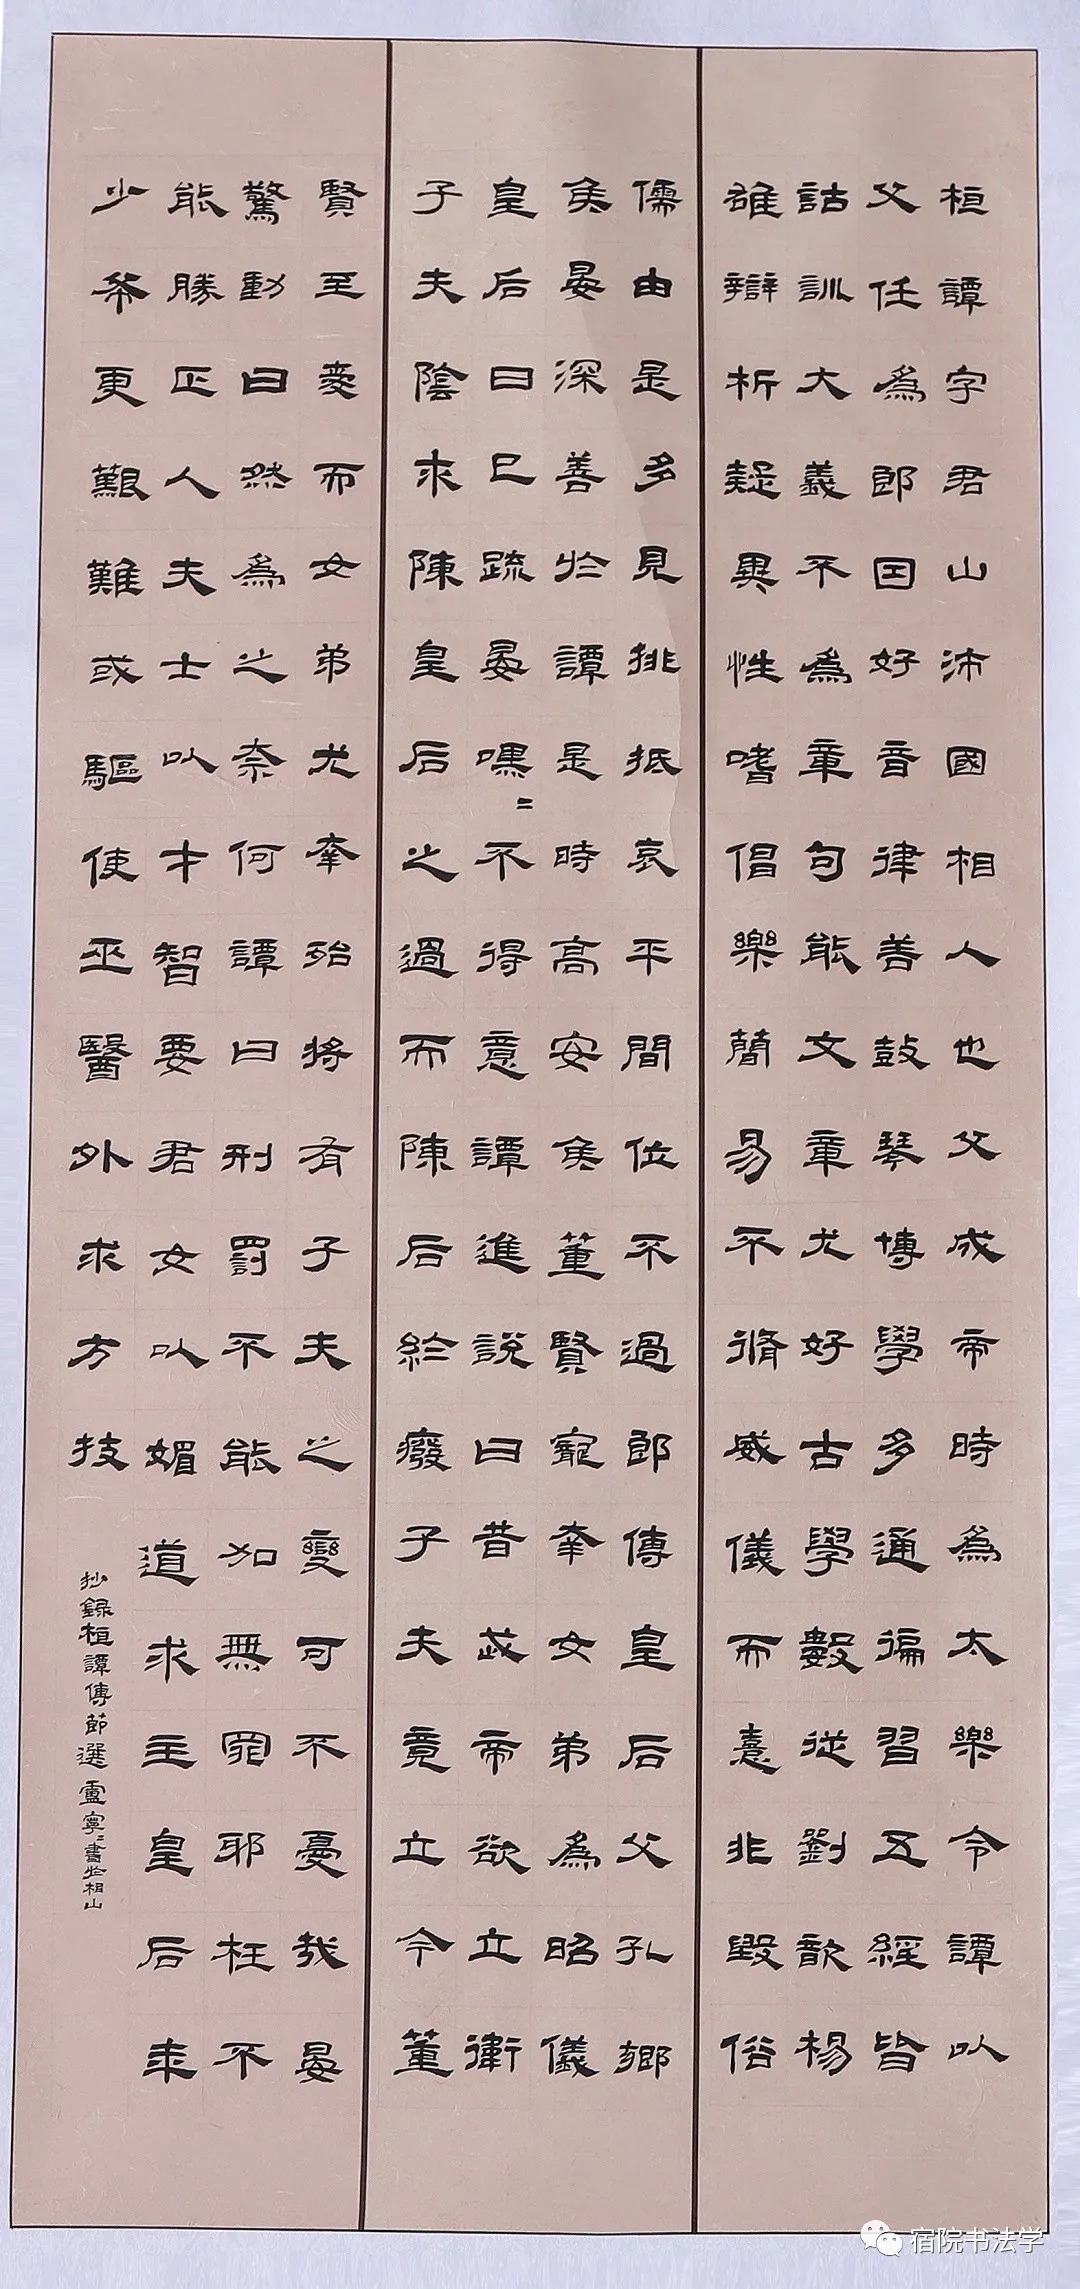 桓譚字君山沛國相人也父成帝時為太樂令譚以
父任為郎因好音律善鼓琴博學多通徧習五經皆
詁訓大義不為章句能文章尤好古學數從劉歆楊
雄辯析疑異性嗜倡樂簡易不脩威儀而憙非毀俗
儒由是多見排抵哀平間位不過郎傅皇后父孔鄉
矦晏深善於譚是時高安矦董賢寵幸女弟為昭儀
皇后日已疏晏嘿〻不得意譚進說曰昔武帝欲立衛
子夫陰求陳皇后之過而陳后終廢子夫竟立今董
賢至愛而女弟尤幸殆將有子夫之變可不憂哉晏
驚動曰然為之奈何譚曰刑罰不能加無罪耶枉不
能勝正人夫士以才智要君女以媚道求主皇后年
少希更艱難或驅使巫醫外求方技
抄録桓譚傳節選盧寧〻書於相山
宿院书法学